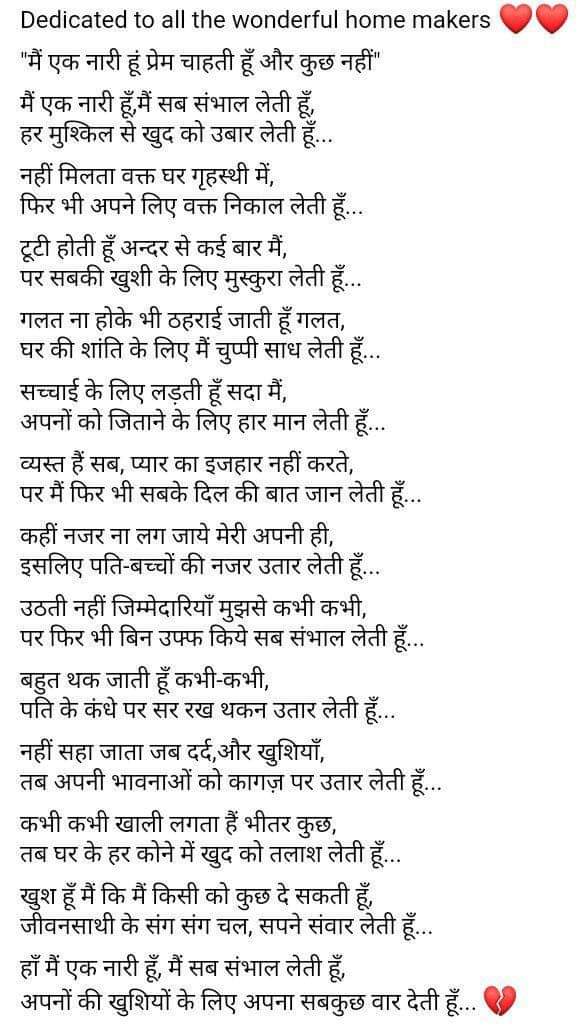 Dedicated to all the wonderful home makers ❤️❤️
"मैं एक नारी हूं प्रेम चाहती हूँ और कुछ नहीं"
मैं एक नारी हूँ,मैं सब संभाल लेती हूँ,
हर मुश्किल से खुद को उबार लेती हूँ...
नहीं मिलता वक्त घर गृहस्थी में,
फिर भी अपने लिए वक्त निकाल लेती हूँ...
टूटी होती हूँ अन्दर से कई बार मैं,
पर सबकी खुशी के लिए मुस्कुरा लेती हूँ...
गलत ना होके भी ठहराई जाती हूँ गलत,
घर की शांति के लिए मैं चुप्पी साध लेती हूँ...
सच्चाई के लिए लड़ती हूँ सदा मैं,
अपनों को जिताने के लिए हार मान लेती हूँ...
व्यस्त हैं सब, प्यार का इजहार नहीं करते,
पर मैं फिर भी सबके दिल की बात जान लेती हूँ...
कहीं नजर ना लग जाये मेरी अपनी ही,
इसलिए पति-बच्चों की नजर उतार लेती हूँ...
उठती नहीं जिम्मेदारियाँ मुझसे कभी कभी,
पर फिर भी बिन उफ्फ किये सब संभाल लेती हूँ...
बहुत थक जाती हूँ कभी-कभी,
पति के कंधे पर सर रख थकन उतार लेती हूँ...
नहीं सहा जाता जब दर्द,और खुशियाँ,
तब अपनी भावनाओं को कागज़ पर उतार लेती हूँ...
कभी कभी खाली लगता हैं भीतर कुछ,
तब घर के हर कोने में खुद को तलाश लेती हूँ...
खुश हूँ मैं कि मैं किसी को कुछ दे सकती हूँ,
जीवनसाथी के संग संग चल, सपने संवार लेती हूँ...
हाँ मैं एक नारी हूँ, मैं सब संभाल लेती हूँ,
अपनों की खुशियों के लिए अपना सबकुछ वार देती हूँ... 💔